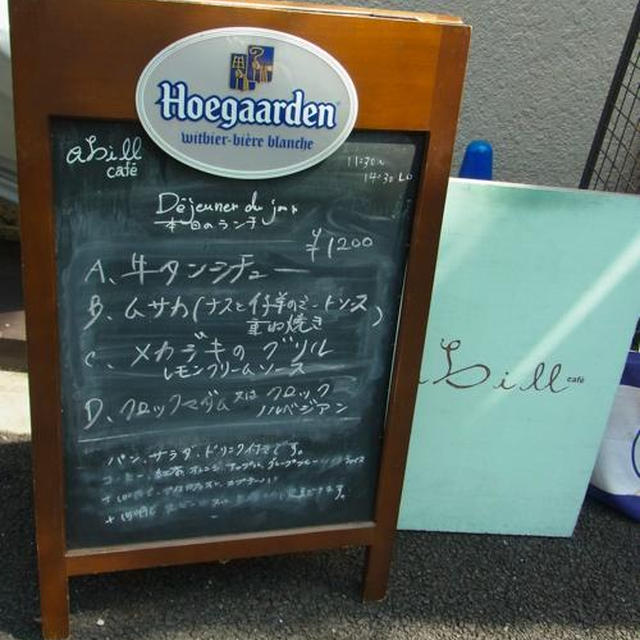 Hoegaarden
witbier-bière blanche
abill
café
11:30~
14:30 Lo
Déjeuner du jour
本日のランチ
¥1200
A、牛タンシチュー
B、ムサカ(ナスと仔羊のミートソース
重ね焼き)
C、メカジキのグリル
レモンクリームソース
D、クロックマダム又はクロック
ノルベジアン
パン、サラダ、ドリンク付きです。
abill café